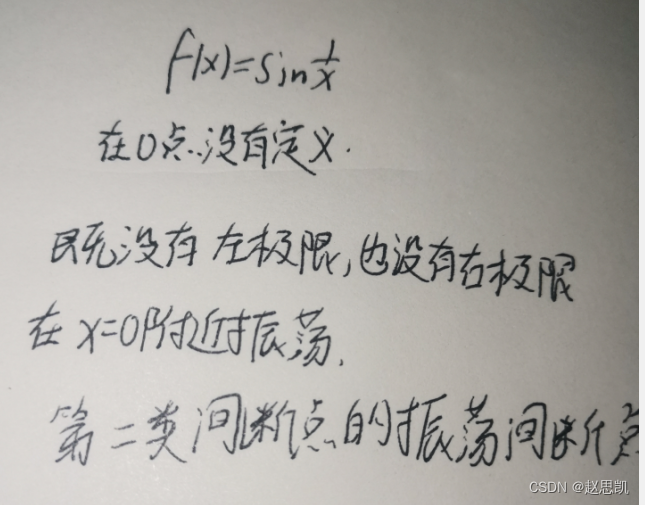 f(x)=sin 1/x
在0点没有定义.
既没有左极限,也没有右极限
在x=0附近振荡.
第二类间断点的振荡间断点
CSDN @赵思凯